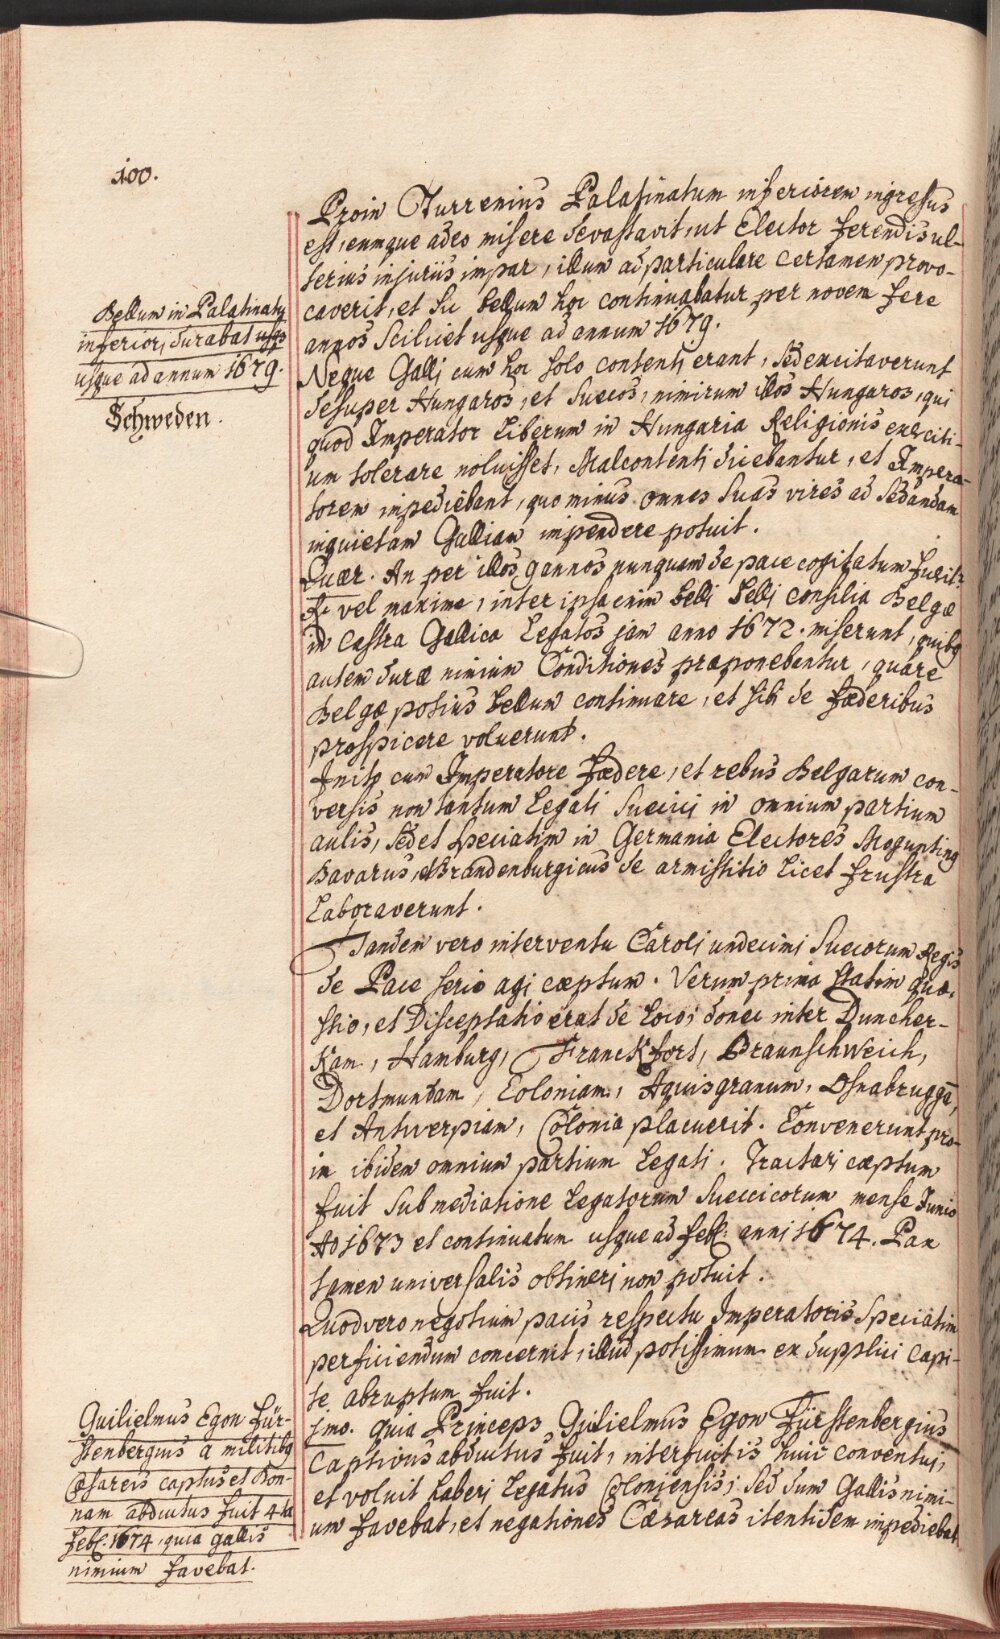 100.
Proin Turrenius Palatinatum inferiorem ingressus
est, eumque adeo misere devastavit, ut Elector ferendis ul-
terius injuriis impar, illum ad particulare certamen provo-
caverit, et sic bellum hoc continuabatur per novem fere
annos scilicet usque ad annum 1679.
Bellum in Palatinatu
inferiori durabat usqs
usque ad annum 1679.
Schweden.
Neque Galli cum hoc solo contenti erant, sed excitaverunt
desuper Hungaros, et Suecos, nimirum illos Hungaros, qui
quod Imperator liberum in Hungaria Religionis exerciti-
um tolerare noluisset, Malcontenti dicebantur, et Impera-
torem impediebant, quo minus omnes suas vires ad sedandam
inquietam Galliam impendere potuit.
Quær. An per illos 9 annos nunquam de pace cogitatum fuerit?
R. vel maxime, inter ipsa enim belli belli consilia Belgæ
in castra Gallica Legatos jam anno 1672. miserunt, quibq
autem duræ nimium Conditiones præponebantur, quare
Belgæ potius bellum continuare, et sibi de fæderibus
prospicere voluerunt.
Inito cum Imperatore Fædere, et rebus Belgarum con-
versis non tantum Legati Suecici in omnium partium
aulis, sed et speciatim in Germania Electores Moguntinq
Bavarus, et Brandenburgicus de armistitio licet frustra
Laboraverunt.
Tandem vero interventu Caroli undecimi Suecorum Regis
de Pace serio agi cæptum. Verum prima statim quæ-
stio, et Disceptatio erat de loco; donec inter Duncher-
kam, Hamburg, Franckfort, Braunschweich,
Dortmundam, Coloniam, Aquisgranum, Osnabruggā,
et Antwerpiam, Colonia placuerit. Convenerunt pro-
in ibidem omnium partium Legati. Tractari cæptum
fuit sub mediatione Legatorum Suecicorum mense Junio
Ao 1673 et continuatum usque ad Feb: anni 1674. Pax
tamen universalis obtineri non potuit.
Quod vero negotium pacis respectu Imperatoris speciatim
perficiendum concernit, illud potissimum ex duplici capi-
te abruptum fuit.
1mo. quia Princeps Guilielmus Egon Fürstenbergius
captivus abductus fuit, interfuit is huic conventui,
et voluit haberi Legatus Coloniensis; sed dum Gallis nimi-
um favebat, et negationes Cæsareas itentidem impediebat
Guilielmus Egon Für-
stenbergius a militibq
Cæsareis captus et Bon-
nam abductus fuit 4ta
Feb. 1674, quia gallis
nimium favebat.